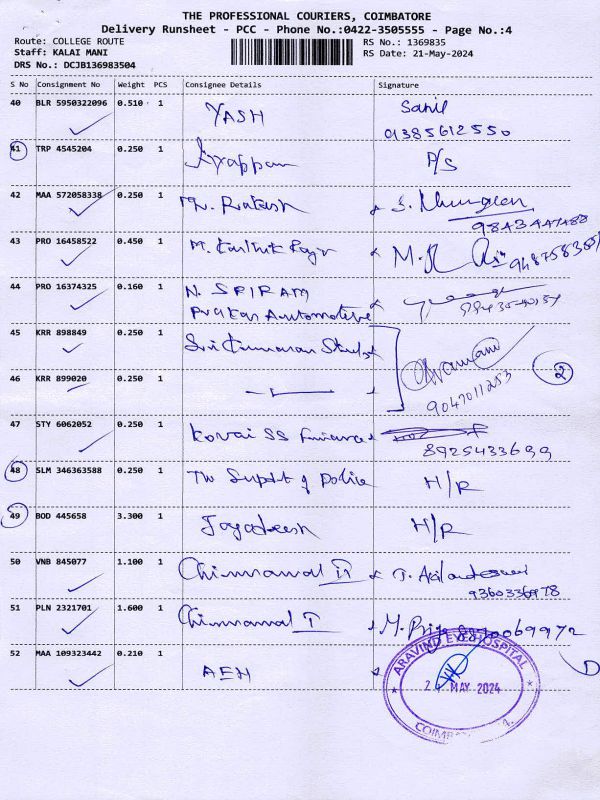 THE PROFESSIONAL COURIERS, COIMBATORE
Delivery Runsheet - PCC - Phone No.:0422-3505555 - Page No.:4
Route: COLLEGE ROUTE RS No.: 1369835
Staff: KALAI MANI RS Date: 21-May-2024
DRS No.: DCJB136983504
S No Consignment No Weight PCS Consignee Details Signature
40 BLR 5950322096 0.510 1 YASH Sahil
9385612550
41 TRP 4545204 0.250 1 Ayyappan P/S
42 MAA 572058338 0.250 1 Mr. Rakesh
43 PRO 16458522 0.450 1 M. Karthik Raja
44 PRO 16374325 0.160 1 N. SRIRAM
Prakas Automotive
45 KRR 898849 0.250 1 Sri Kumaran
46 KRR 899020 0.250 1
9047011253
2
47 STY 6062052 0.250 1 Kovai SS Finance
8925433699
48 SLM 346363588 0.250 1 The Supdt of Police H/R
49 BOD 445658 3.300 1 Jagadeesh H/R
50 VNB 845077 1.100 1 Chinnamal
9360336978
51 PLN 2321701 1.600 1 Chinnamal M. Priya
52 MAA 109323442 0.210 1 AEH
ARAVIND EYE HOSPITAL
MAY 2024